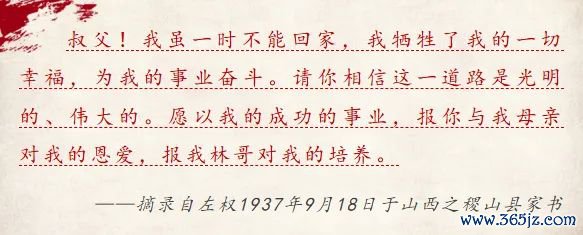 叔父！我虽一时不能回家，我牺牲了我的一切
幸福，为我的事业奋斗。请你相信这一道路是光明
的、伟大的。愿以我的成功的事业，报你与我母亲
对我的恩爱，报我林哥对我的培养。
——摘录自左权1937年9月18日于山西之稷山县家书
www.365jz.com